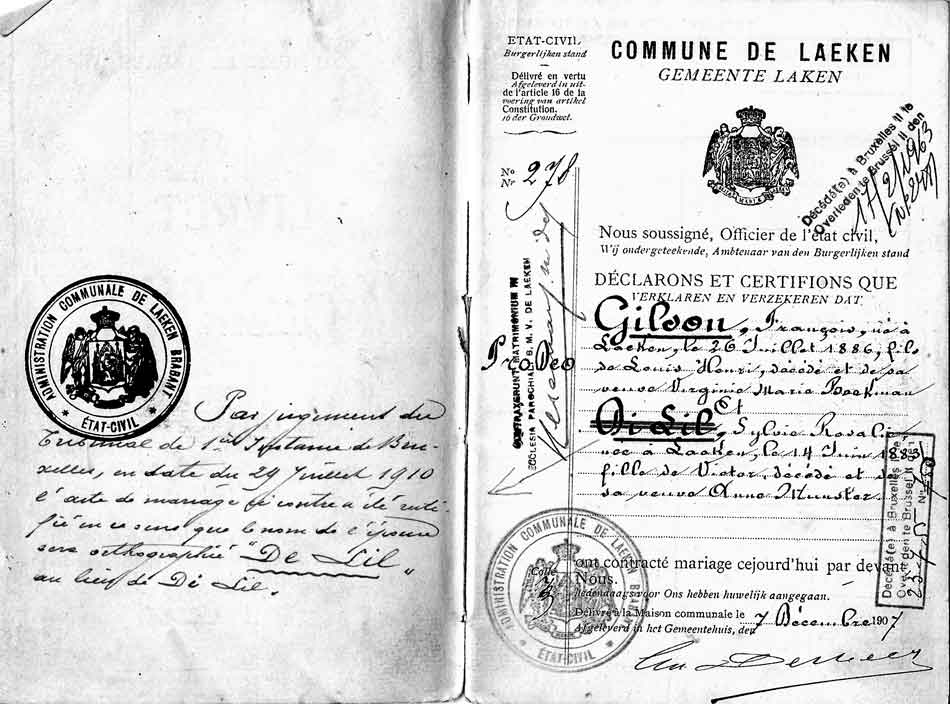 ADMINISTRATION COMMUNALE DE LAEKEN BRABANT
ÉTAT-CIVIL
Par jugement du
Tribunal de 1re Instance de Bru-
xelles, en date du 24 Juillet 1910
l'acte de mariage ci contre a été recti-
fié en ce sens que le nom de l'épouse
sera orthographié "De Lil"
au lieu de Di Lil.
ETAT-CIVIL
Burgerlijken stand
Délivré en vertu
Afgeleverd in uit-
de l'article 16 de la
voering van artikel
Constitution.
16 der Grondwet.
No
Nr 278
COMMUNE DE LAEKEN
GEMEENTE LAKEN
Décédé(e) à Bruxelles II le
Overleden te Brussel II den
17/2/1963
Nous soussigné, Officier de l'état civil,
Wij ondergeteekende, Ambtenaar van den Burgerlijken stand
DÉCLARONS ET CERTIFIONS QUE
VERKLAREN EN VERZEKEREN DAT
Gilson, François, né à
Laeken, le 26 Juillet 1886, fils
de Louis Henri, décédé et de sa
veuve Virginie Maria Boekman
Et
Di Lil, Sylvie Rosalie
née à Laeken, le 14 Juin 1883
fille de Victor, décédé et de
sa veuve Anna Munster
Pro Deo
CONTRAXERUNT MATRIMONIUM IN
ECCLESIA PAROCHIALI B. M. V. DE LAEKEN
Décédé(e) à Bruxelles II le
Overleden te Brussel II den
No
ont contracté mariage cejourd'hui par devant
Nous.
Hedendaags voor Ons hebben huwelijk aangegaan.
Délivré à la Maison communale le 7 Décembre 1907
Afgeleverd in het Gemeentehuis, den
ADMINISTRATION COMMUNALE DE LAEKEN BRABANT
ÉTAT-CIVIL